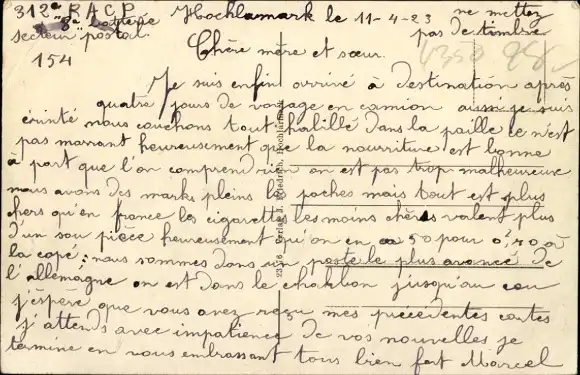 312e R A C P Hochlamark le 11-4-23 ne mettez
3e batterie pas de timbre
secteur postal
154
Chère mère et sœur
Je suis enfin arrivé à destination après
quatre jours de voyage en camion aussi je suis
érinté nous couchons tout habillé dans la paille ce n'est
pas marrant heureusement que la nourriture est bonne
à part que l'on comprend rien on est pas trop malheureuse
nous avons des marks pleins les poches mais tout est plus
chers qu'en france les cigarettes les moins chères valent plus
d'un sou pièce heureusement qu'on en a 50 pour 0f,70 à
la copé; nous sommes dans un poste le plus avancé de
l'allemagne on est dans le charbon jusqu'au cou
j'espère que vous avez reçu mes précédentes cartes
j'attends avec impatience de vos nouvelles je
termine en vous embrassant tous bien fort Marcel